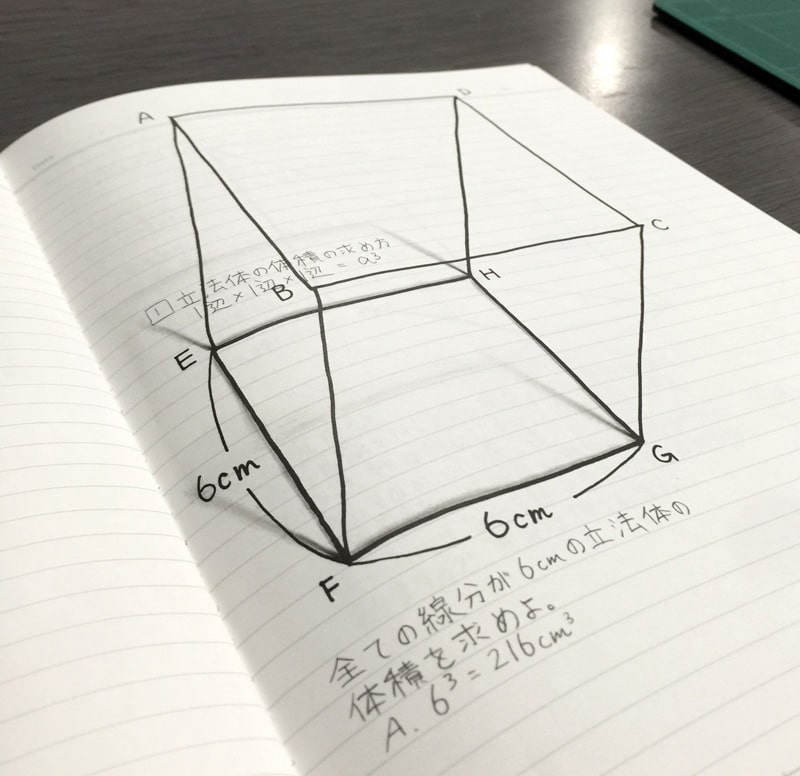 A
D
C
1 立法体の体積の求め方
1辺×1辺×1辺=a³
B
H
E
G
6cm
6cm
F
全ての線分が6cmの立法体の
体積を求めよ。
A. 6³=216cm³